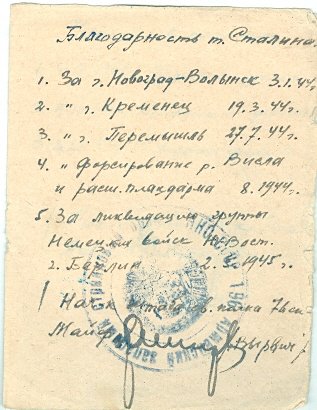 Благодарность т. Сталина.
1. За г. Новоград-Волынск 3.1.44г
2. " г. Кременец 19.3.44г.
3. " г. Перемышль 27.7.44г.
4. " форсирование р. Висла
и расш. плацдарма 8.1944г.
5. За ликвидацию группы
Немецких войск Ю.Вост.
г. Берлин 2. 1945г.
Нач. полка
Майор Вырвич